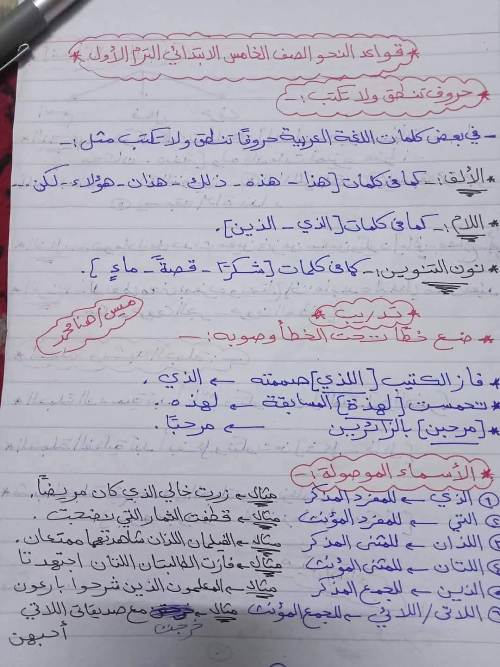 * قواعد النحو الصف الخامس الابتدائي الترم الأول *
* حروف تنطق ولا تكتب :-
- في بعض كلمات اللغة العربية حروفًا تنطق ولا تكتب مثل :-
* الألف :- كما في كلمات [هذا - هذه - ذلك - هذان - هؤلاء - لكن ...
* اللام :- كما في كلمات [الذي - الذين].
* نون التنوين :- كما في كلمات [شكرًا - قصةً - ماءٍ].
* تدريب *
ميس/هنا محمد
* ضع خطًا تحت الخطأ وصوبه :-
* فاز الكتيب [اللذي] صممته ← الذي.
* تحمست [لهاذة] المسابقة ← لهذه.
* [مرحبن] بالزائرين ← مرحبًا.
* الأسماء الموصولة :-
① الذي ← للمفرد المذكر مثال ← زرت خالي الذي كان مريضًا.
② التي ← للمفرد المؤنث مثال ← قطفت الثمار التي نضجت.
③ اللذان ← للمثنى المذكر مثال ← الفيلمان اللذان شاهدتهما ممتعان.
④ اللتان ← للمثنى المؤنث مثال ← فازت الطالبتان اللتان اجتهدتا
⑤ الذين ← للجمع المذكر مثال ← المعلمون الذين شرحوا بارعون
⑥ اللاتي / اللائي ← للجمع المؤنث مثال ← خرجت مع صديقاتي اللاتي
أحبهن